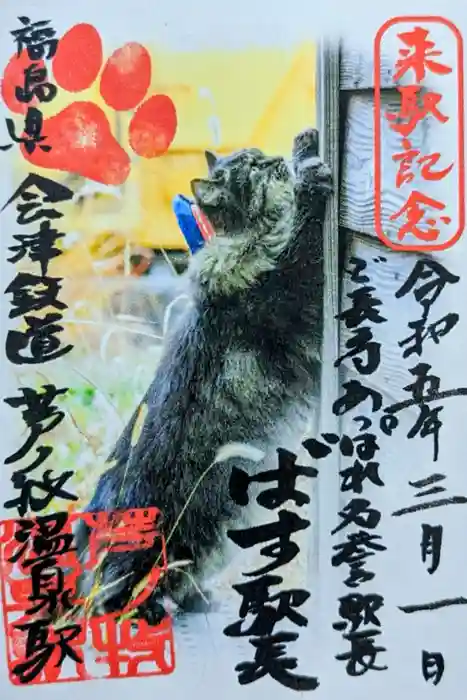 来駅記念
令和五年三月一日
ご長寿あっぱれ名誉駅長
ばす駅長
福島県
会津鉄道
芦ノ牧温泉駅